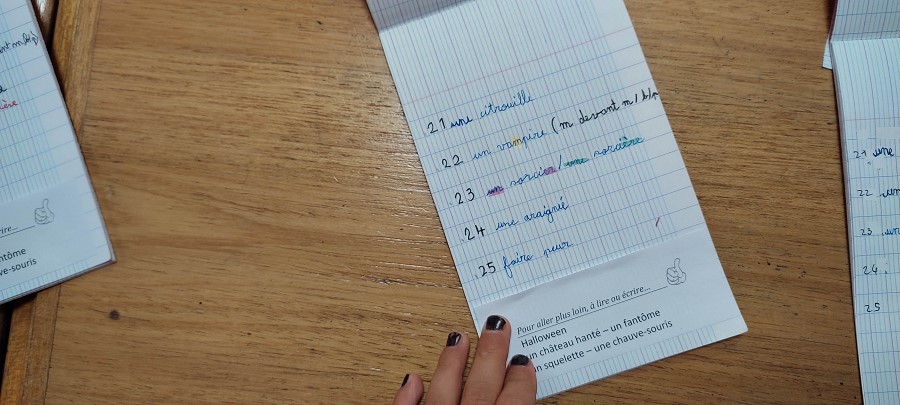 ière
rire...
ntôme
ve-souris
21 une citrouille
22 un vampire (m devant m/b/p
23 un sorcier/une sorcière
24 une araignée
25 faire peur
Pour aller plus loin, à lire ou écrire...
Halloween
un château hanté – un fantôme
un squelette – une chauve-souris
21 une
22 un
23 un
24
25